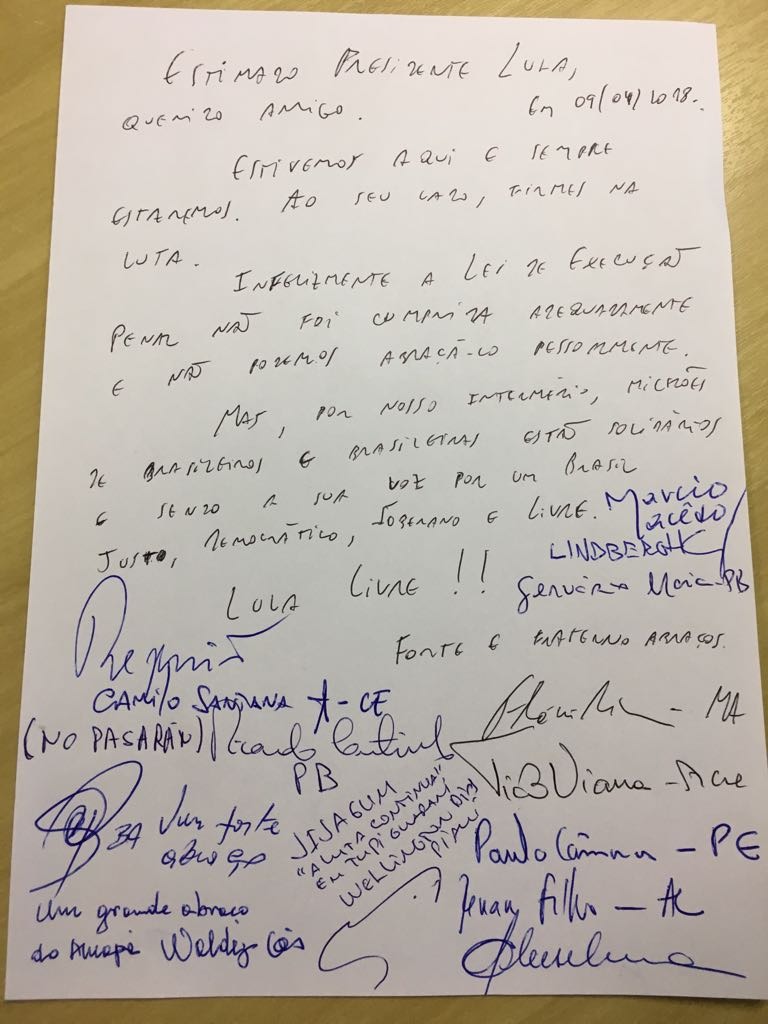 ESTIMADO PRESIDENTE LULA,
QUERIDO AMIGO.
Em 09/04/2018.
ESTIVEMOS AQUI E SEMPRE
ESTAREMOS. AO SEU LADO, FIRMES NA
LUTA.
INFELIZMENTE A LEI DE EXECUÇÃO
PENAL NÃO FOI CUMPRIDA ADEQUADAMENTE
E NÃO PODEMOS ABRAÇÁ-LO PESSOALMENTE.
MAS, POR NOSSO INTERMÉDIO, MILHÕES
DE BRASILEIROS E BRASILEIRAS ESTÃO SOLIDÁRIOS
E SENDO A SUA VOZ POR UM BRASIL
JUSTO, DEMOCRÁTICO, SOBERANO E LIVRE.
Marcio
Macêdo
LINDBERGH
Gervásio Maia-PB
LULA LIVRE!!
FORTE E FRATERNO ABRAÇOS.
Requião
CAMILO SANTANA - CE
(NO PASARÁN)
Ricardo Coutinho
PB
Flávio Dino - MA
Tião Viana - Acre
BA Um forte
abraço
JIJAGUM
"A LUTA CONTINUA"
EM TUPI GUARANI
WELLINGTON DIAS
PIAUÍ
Paulo Câmara - PE
Renan Filho - AL
Um grande abraço
do Amapá Waldez Góes